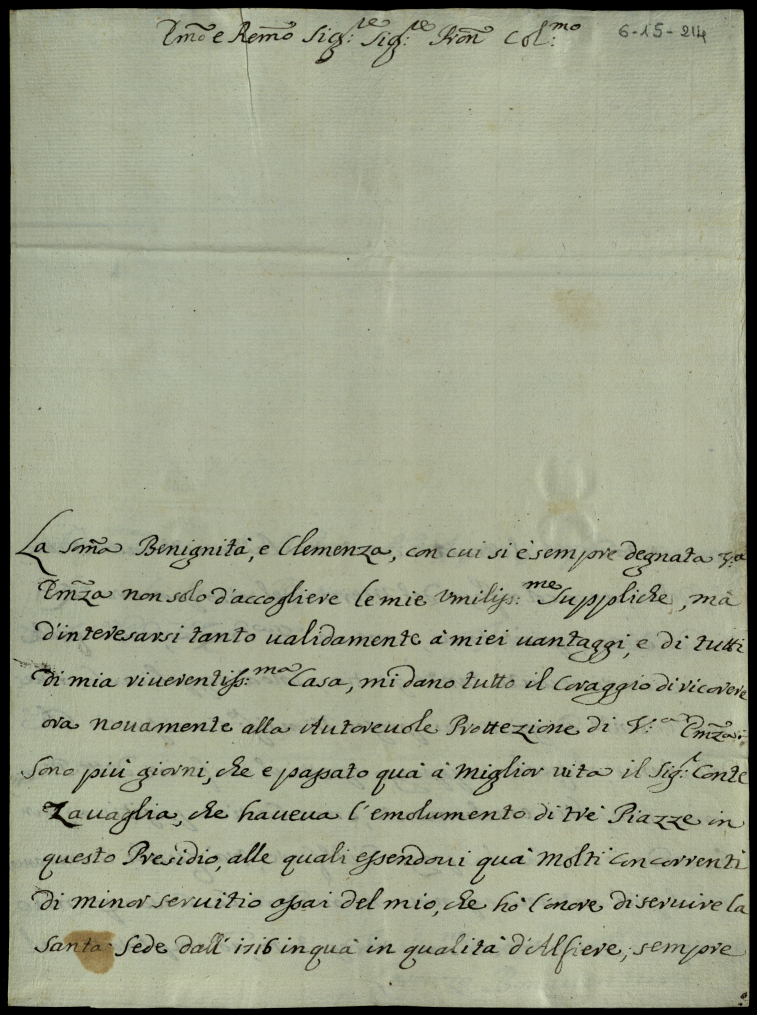 Emõ e Remõ Sig:re Sig:re Pron̄ Col:mo 6-15-214
La som̃a Benignità, e Clemenza, con cui si è sempre degnata V:a
Em̃za non solo d'accogliere le mie Vmiliss:me Suppliche, mà
d'interesarsi tanto ualidamente à miei uantaggi, e di tutti
di mia riuerentiss:ma Casa, mi dano tutto il Coraggio di ricorere
ora nouamente alla Autoreuole Prottezione di V:a Em̃za:
Sono più giorni, che e passato quà à Miglior vita il Sig:r Conte
Zauaglia, che haueua l'emolumento di trè Piazze in
questo Presidio, alle quali essendoui quà Molti Concorrenti
di minor seruitio assai del mio, che hò l'onore di seruire la
Santa Sede dall' 1716 in quà in qualità d'Alfiere, sempre